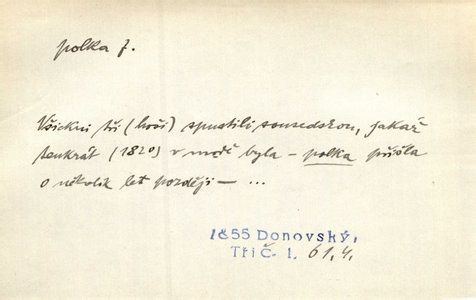 polka f.
Všickni tři (hoši) spustili sousedskou, jakáž
tenkrát (1820) v modě byla – polka přišla
o několik let později – ...
1855 Donovský,
Tři č. 1. 61,4.